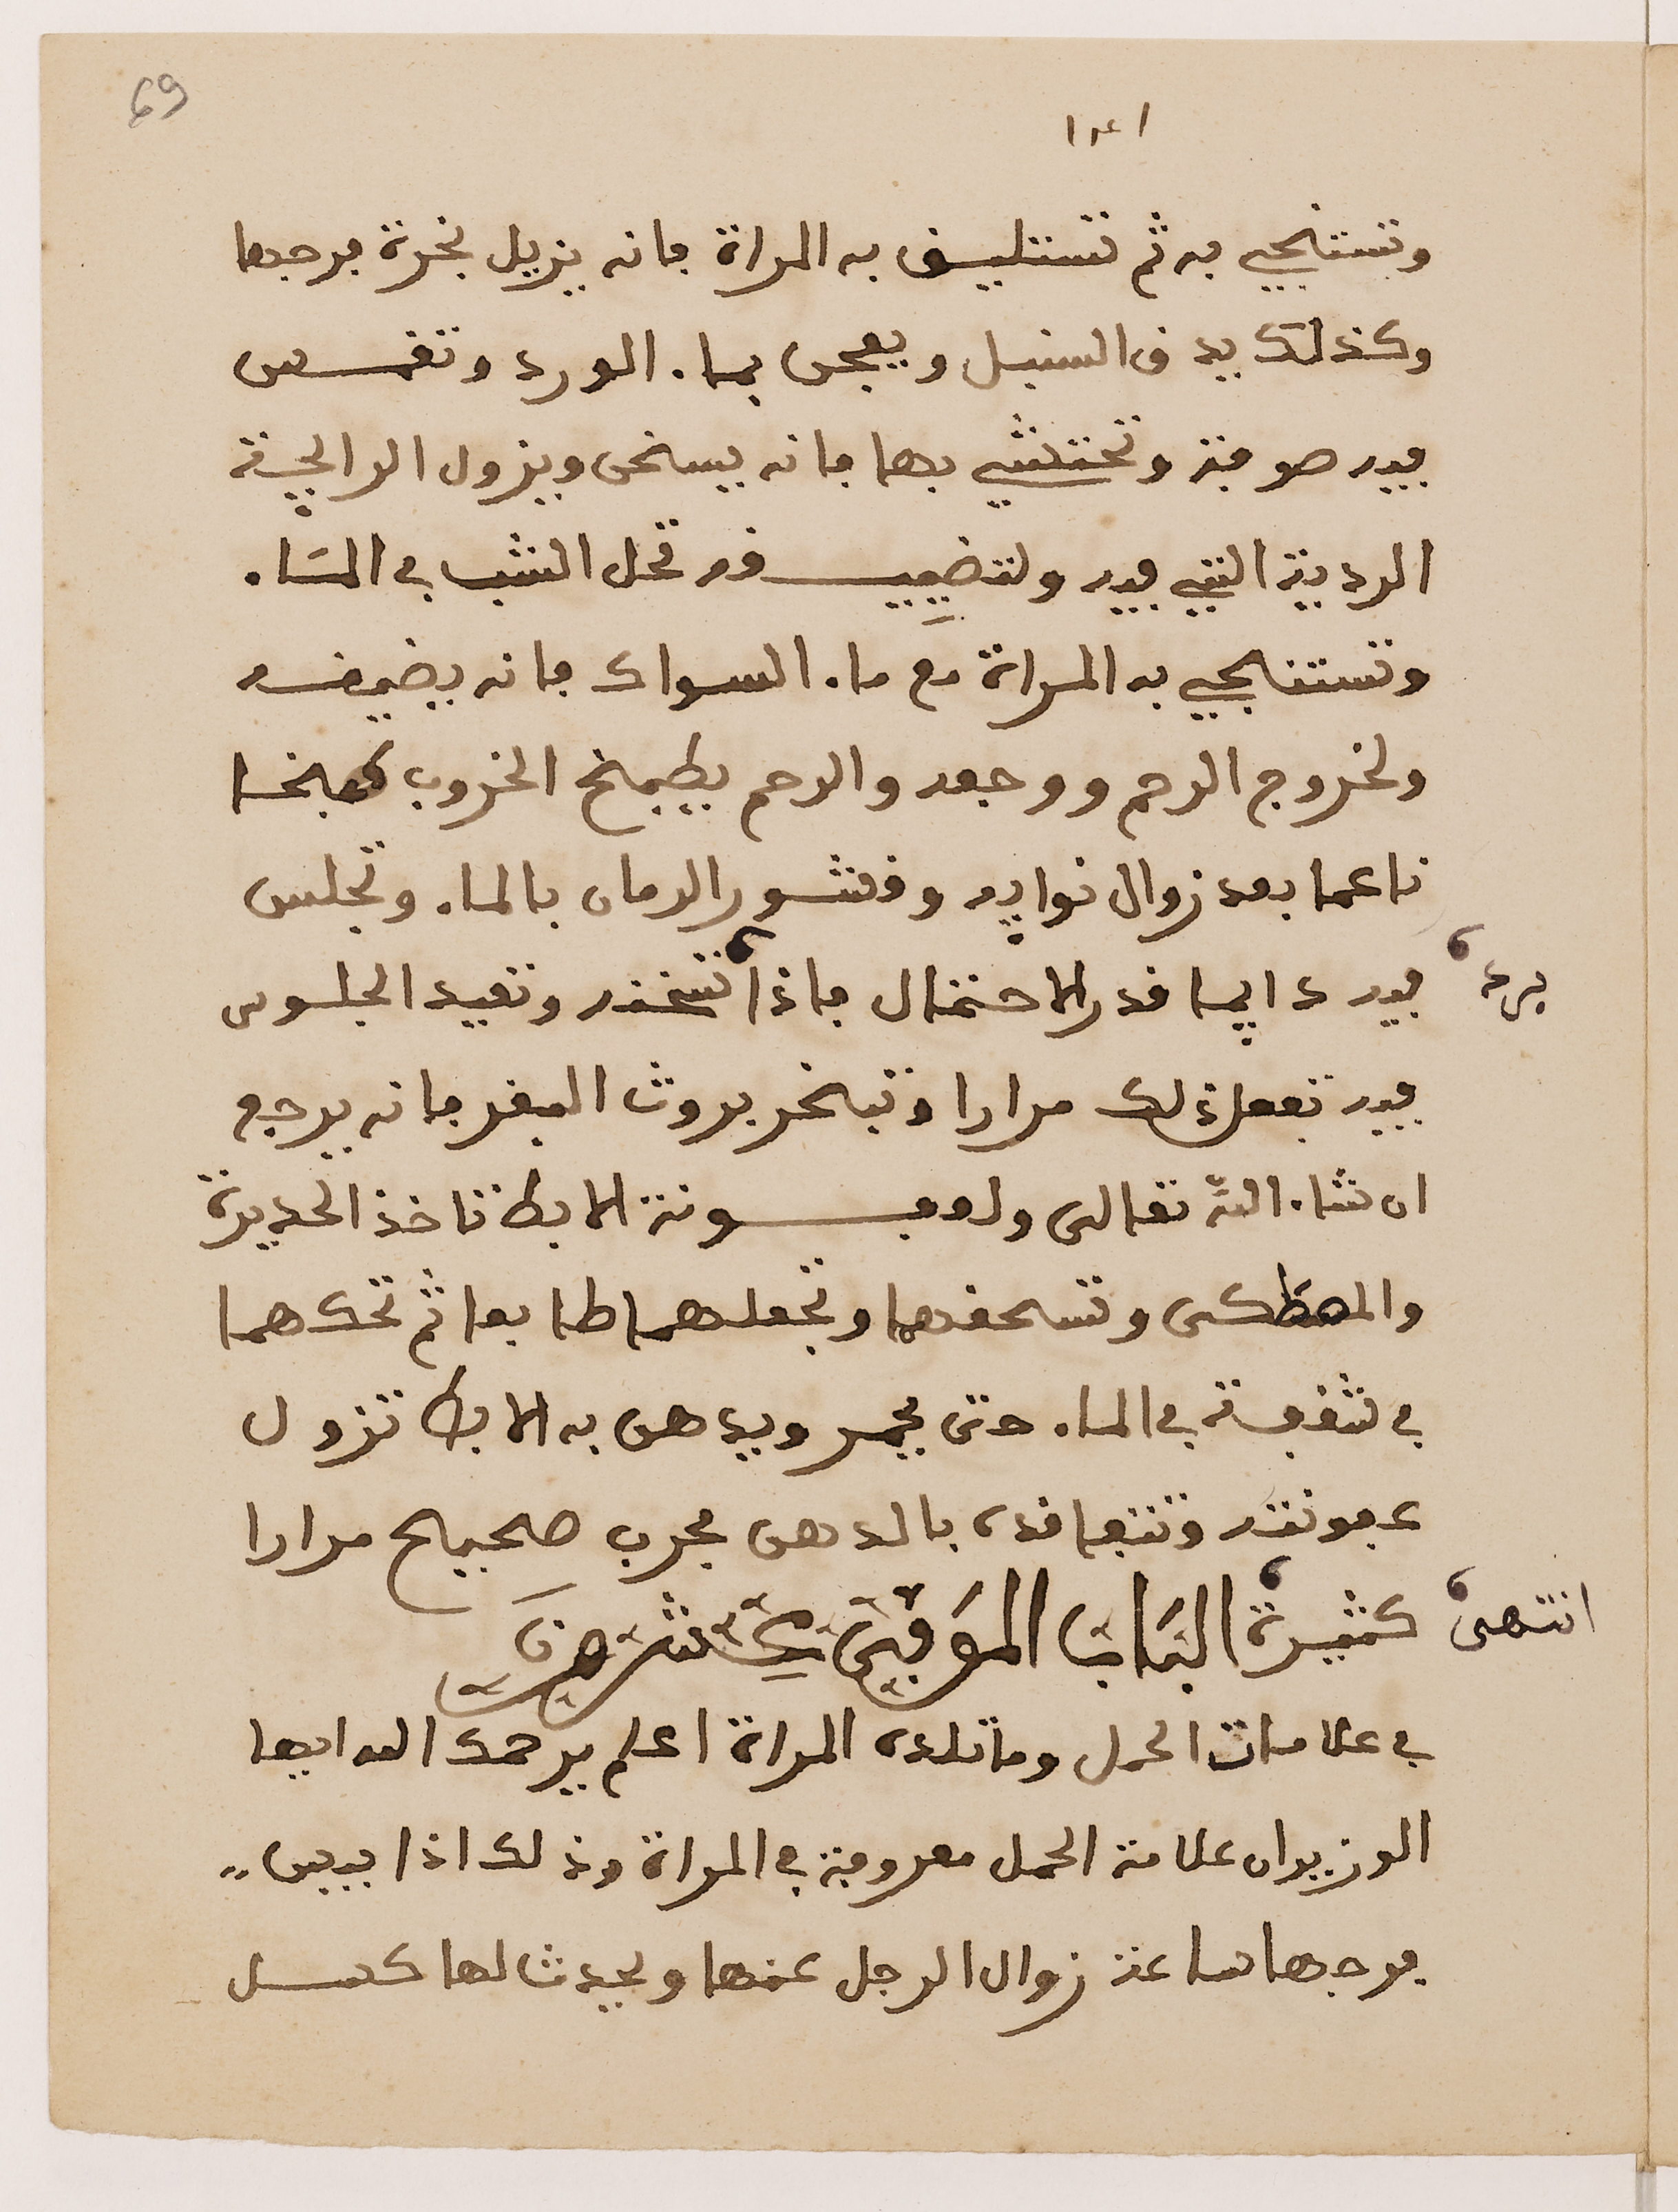 69
وتستنجي به ثم تستليف به المراة فانه يزيل نخرة فرجها
وكذلك يدق السنبل ويعجن بماء الورد وتغمس
فيه صوفة وتحتشي بها فانه يسخن ويزول الرايحة
الردية التي فيه ولتضييـقه تحل الشب في الماء
وتستنجي به المراة مع ماء السواك فانه يضيقه
ولخروج الرحم ووجعه والرحم يطبخ الخروب طبخا
ناعما بعد زوال نوايه وقشور الرمان بالماء وتجلس
فيه دايما قدر الاحتمال فاذا تسخنه وتعيد الجلوس
برد
فيه تفعل ذلك مرارا وتبخر بروث البقر فانه يرجع
ان شاء الله تعالى ولعفـونة الابط تاخذ الحديدة
والمصطكى وتسحقهما وتجعلهما طابعا ثم تحكهما
في شقفة في الماء حتى يحمر ويدهن به الابط تزول
عفونته وتتعاقده بالدهن مجرب صحيح مرارا
كثيرة الباب الموفي عشرون
انتهى
في علامات الحمل وما تلده المراة اعلم يرحمك الله ايها
الوزير ان علامة الحمل معروفة في المراة وذلك اذا يبس
فرجها ساعة زوال الرجل عنها ويحدث لها كسل